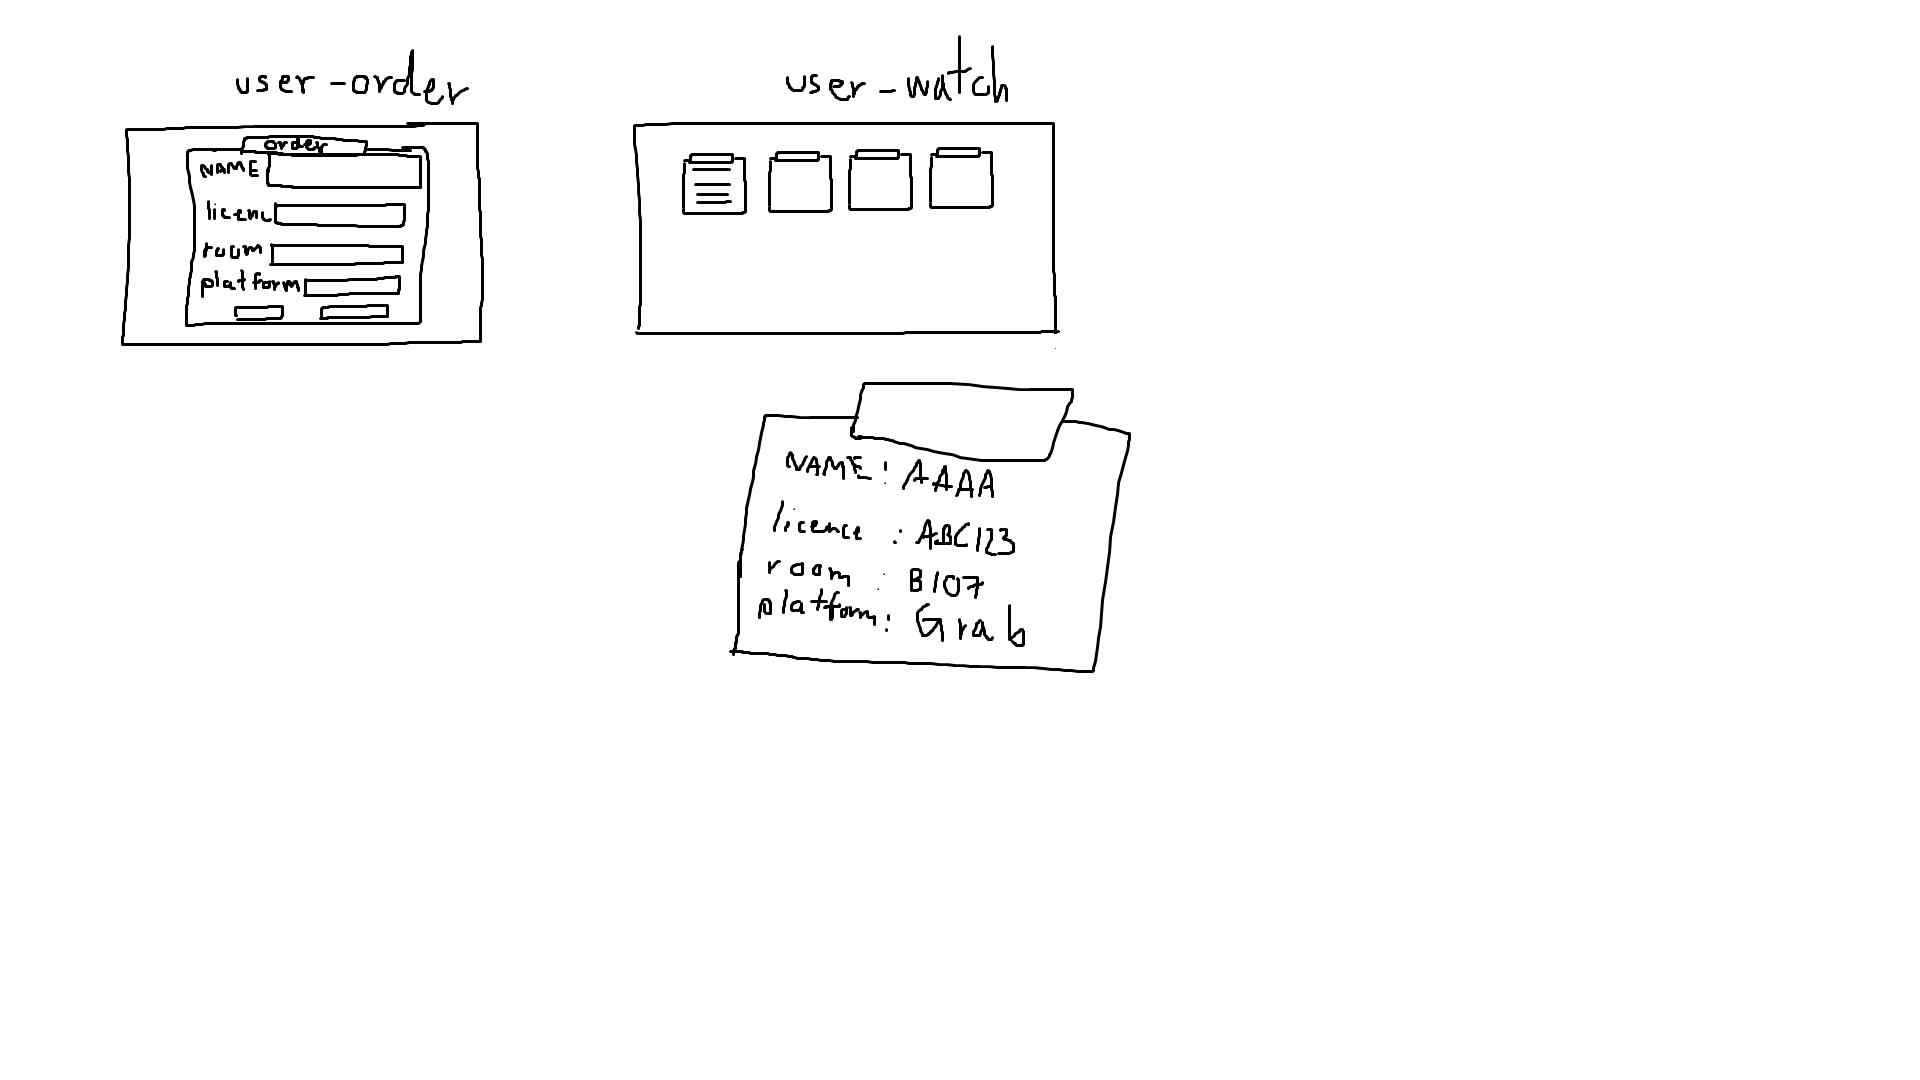 user-order
order
NAME
licenc
room
platform
user-watch
NAME: AAAA
licence : ABC123
room : B107
platform: Grab